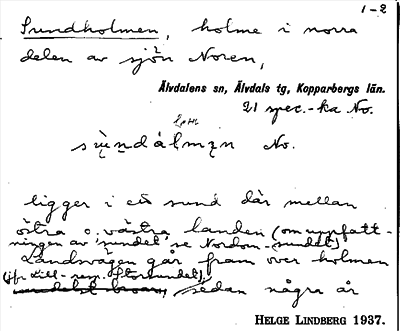 1-2
Sundholmen, holme i norra
delen av sjön Noren,
Älvdalens sn, Älvdals tg, Kopparbergs län.
21 spec.-ka No.
No.
ligger i ett sund där mellan
östra o. västra landen (om uppfatt-
ningen av 'sundet' se Nordom-sundet)
Landsvägen går fram över holmen
(jfr Lill- resp. Storsundet),
sedan några år
HELGE LINDBERG 1937.